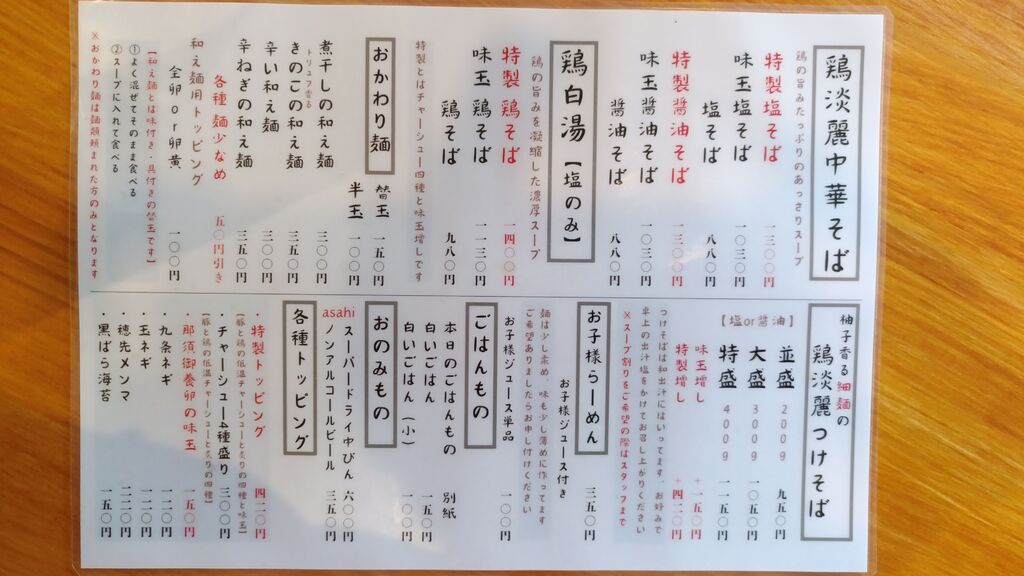 鶏淡麗中華そば
鶏の旨みたっぷりのあっさりスープ
特製塩そば 一三〇〇円
味玉塩そば 一〇三〇円
塩そば 八八〇円
特製醤油そば 一三〇〇円
味玉醤油そば 一〇三〇円
醤油そば 八八〇円
鶏白湯【塩のみ】
鶏の旨みを凝縮した濃厚スープ
特製鶏そば 一四〇〇円
味玉鶏そば 一一三〇円
鶏そば 九八〇円
特製とはチャーシュー四種と味玉増しです
おかわり麺
替玉 一五〇円
半玉 一〇〇円
煮干しの和え麺 三〇〇円
トリュフ香る
きのこの和え麺 三五〇円
辛い和え麺 三〇〇円
辛ねぎの和え麺 三五〇円
各種麺少なめ 五〇円引き
和え麺用トッピング
全卵or卵黄 一〇〇円
【和え麺とは味付き・具付きの替玉です】
①よく混ぜてそのまま食べる
②スープに入れて食べる
※おかわり麺は麺類頼まれた方のみとなります
柚子香る細麺の
鶏淡麗つけそば
【塩or醤油】
並盛 200g 九五〇円
大盛 300g 一〇五〇円
特盛 400g 一一五〇円
味玉増し +一五〇円
特製増し +四二〇円
つけそばは和出汁にはいってます、お好みで
卓上の出汁塩をかけてお召し上がりください
※スープ割りをご希望の際はスタッフまで
お子様らーめん 三五〇円
お子様ジュース付き
麺は少し柔め、味も少し薄めに作ってます
ご希望ありましたらお申し付けください
お子様ジュース単品 一〇〇円
ごはんもの
本日のごはんもの 別紙
白いごはん 一五〇円
白いごはん（小） 一〇〇円
おのみもの
asahi
スーパードライ中びん 六〇〇円
ノンアルコールビール 三五〇円
各種トッピング
・特製トッピング 四二〇円
【豚と鶏の低温チャーシューと炙りの四種と味玉】
・チャーシュー4種盛り 三〇〇円
【豚と鶏の低温チャーシューと炙りの四種】
・那須御養卵の味玉 一五〇円
・九条ネギ 一二〇円
・玉ネギ 一〇〇円
・穂先メンマ 一二〇円
・黒ばら海苔 一五〇円